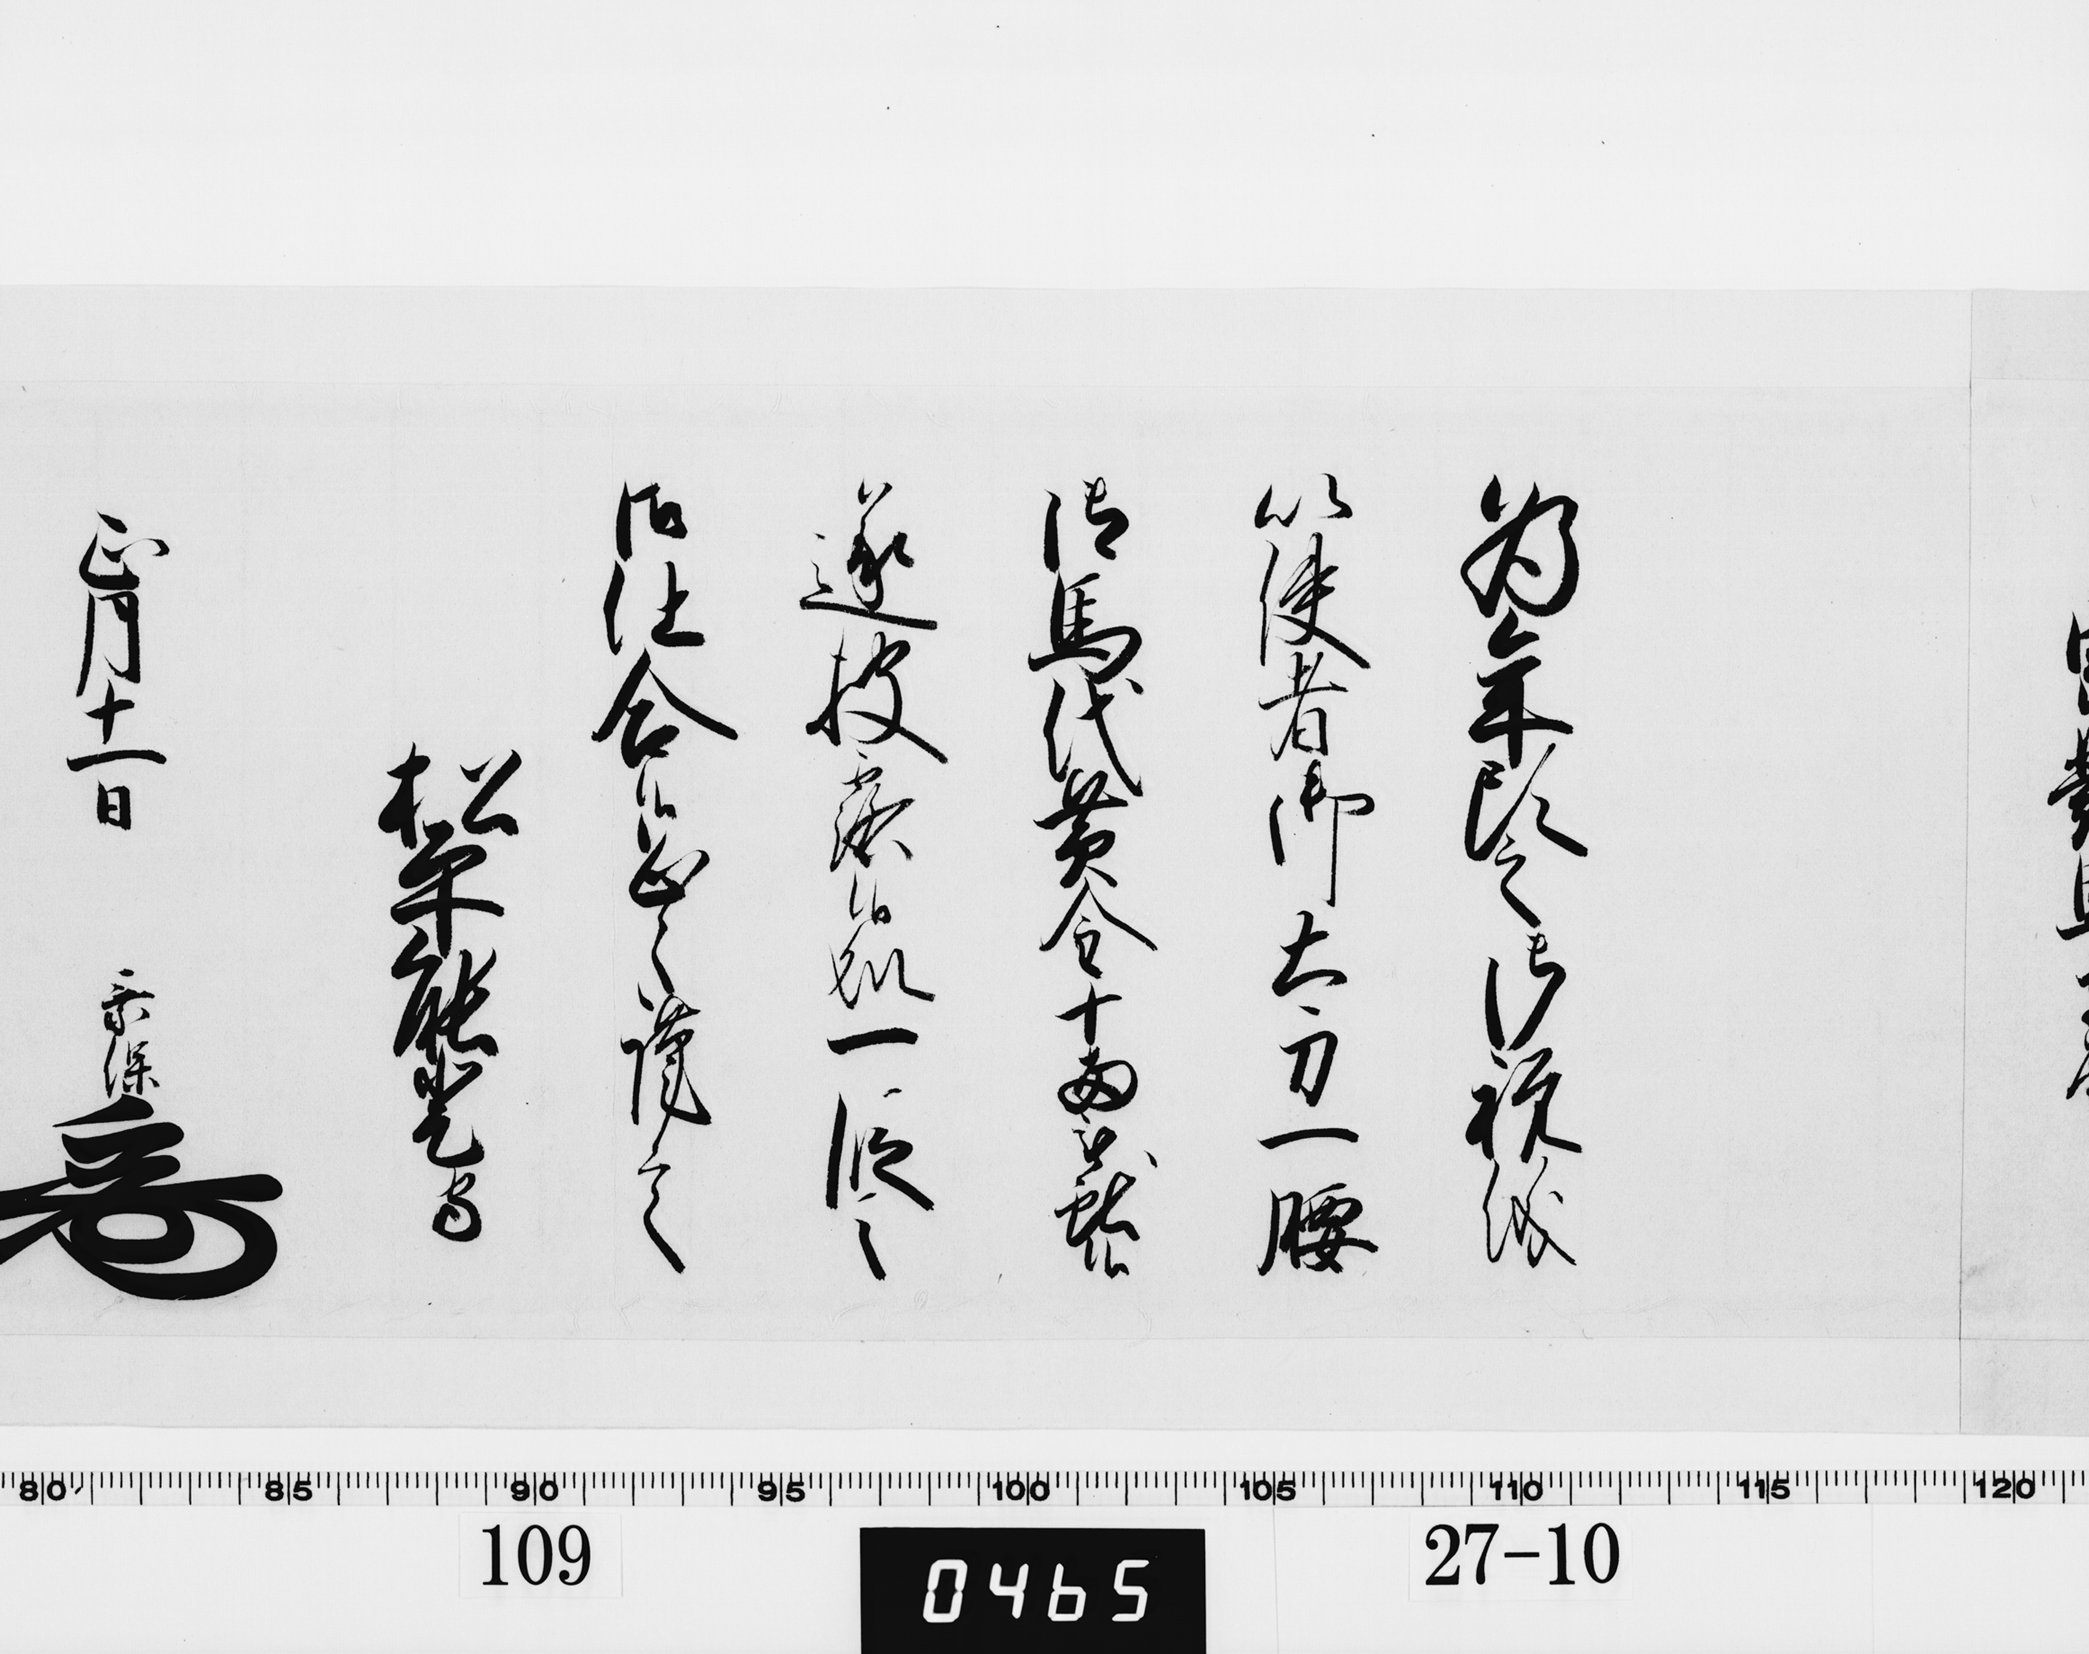 為年頭之御祝儀
以使者御太刀一腰
御馬代黄金十両被献候
遂披露候処一段之
御仕合候恐々謹言
松平能登守
正月十一日 乗保
80 85 90 95 100 105 110 115 120
109
0465
27-10